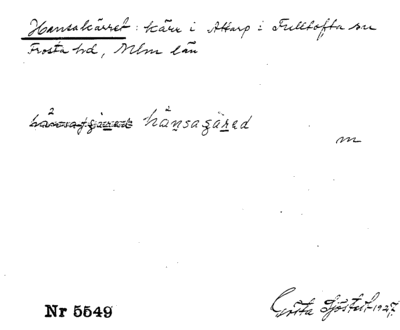 Hansakärret: kärr i Attarp i Fulltofta sn
Frosta hd, Mlm län
hånsagäred
m
Nr 5549
Gösta Sjöstedt 1927.